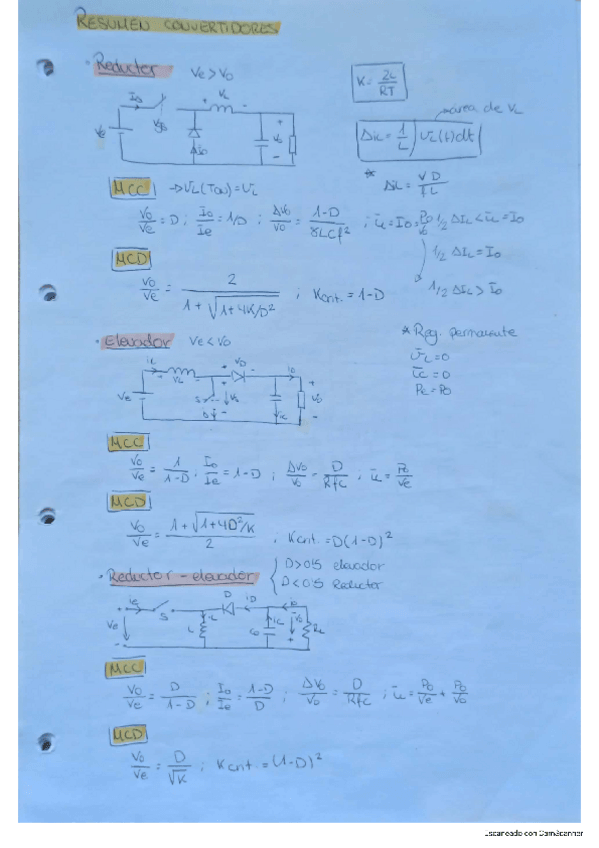 RESUMEN CONVERTIDORES
· Reductor Ve > Vo
K = 2L/RT
área de VL
ΔiL = 1/L ∫ VL(t) dt
* ΔiL = VD/fL
MCC → VL(TON) = VL
Vo/Ve = D ; Io/Ie = 1/D ; ΔVo/Vo = 1-D/8LCf² ; iL = Io = Po/Vo
1/2 ΔiL < iL = Io
1/2 ΔiL = Io
1/2 ΔiL > Io
MCD
Vo/Ve = 2/1 + √1+4K/D² ; Kcrit. = 1-D
· Elevador Ve < Vo
* Reg. permanente
VL = 0
iC = 0
Pe = Po
MCC
Vo/Ve = 1/1-D ; Io/Ie = 1-D ; ΔVo/Vo = D/RfC ; iL = Po/Ve
MCD
Vo/Ve = 1+√1+4D²/K/2 ; Kcrit. = D(1-D)²
· Reductor - elevador
D > 0'5 elevador
D < 0'5 Reductor
MCC
Vo/Ve = D/1-D ; Io/Ie = 1-D/D ; ΔVo/Vo = D/RfC ; iL = Po/Ve + Po/Vo
MCD
Vo/Ve = D/√K ; Kcrit. = (1-D)²
Escaneado con CamScanner